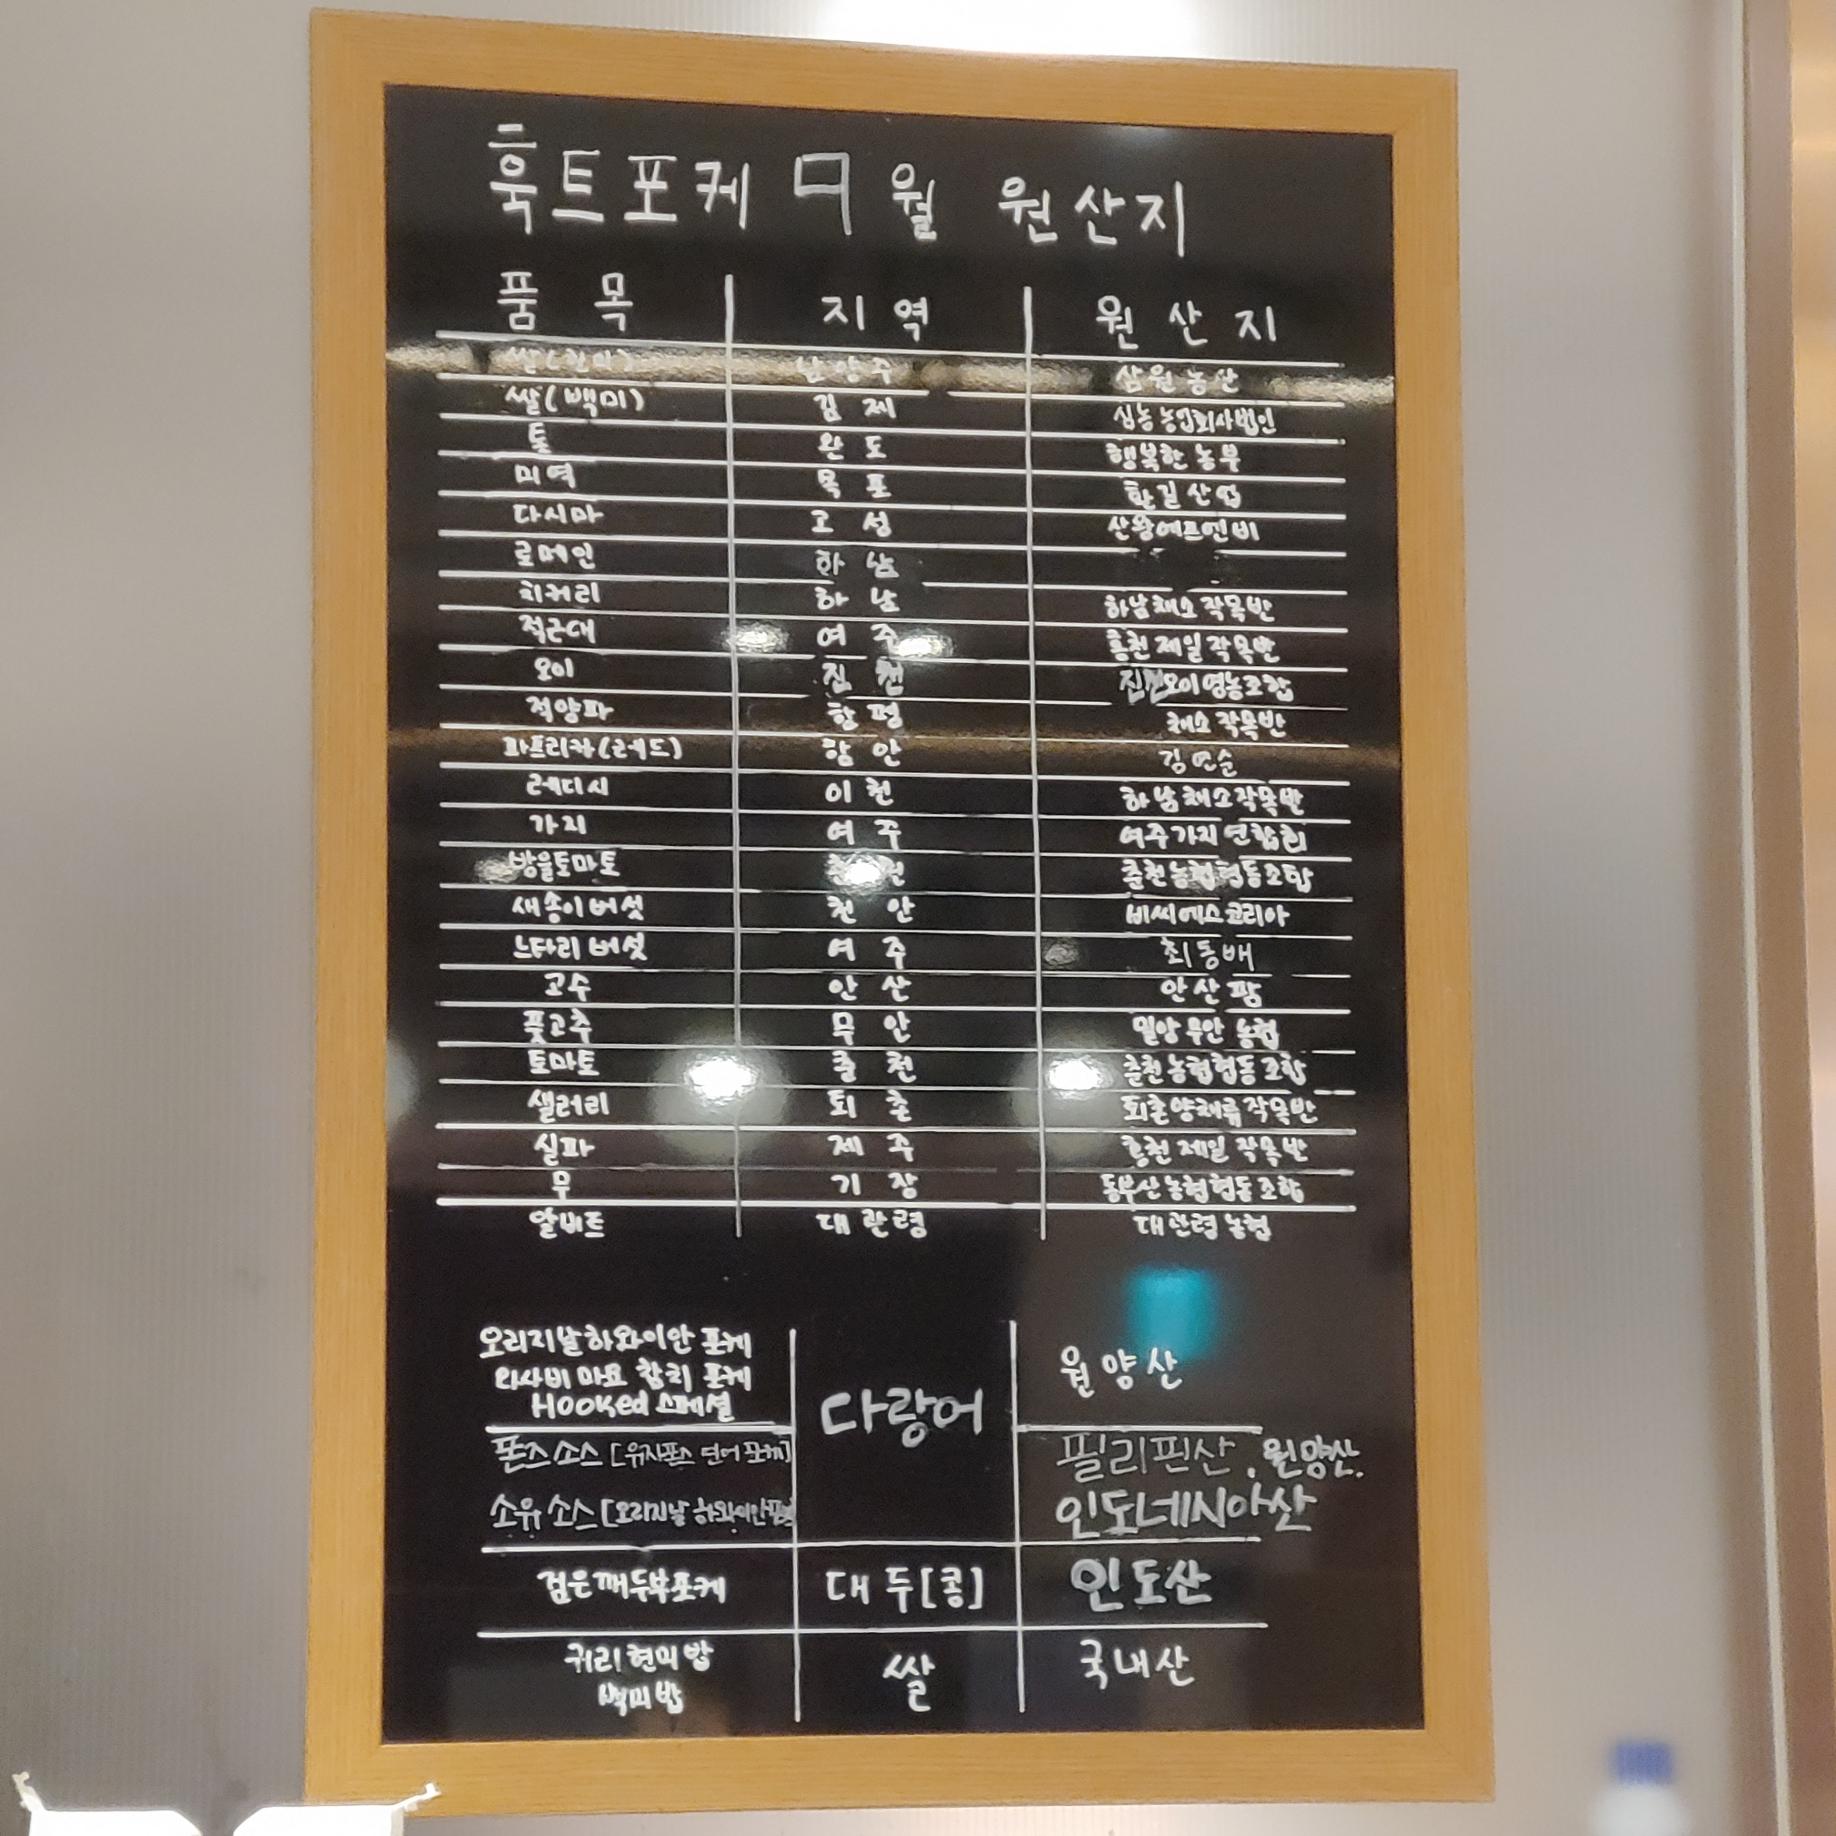 훅트포케 9월 원산지
품목 지역 원산지
쌀(현미) 남양주 삼원농산
쌀(백미) 김제 심농농업회사법인
톳 완도 행복한농부
미역 목포 한길산업
다시마 고성 산왕에프엔비
로메인 하남
치커리 하남 하남채소작목반
적근대 여주 흥천제일작목반
오이 진천 진천오이영농조합
적양파 함평 채소작목반
파프리카(레드) 함안 김연순
레디시 이천 하남채소작목반
가지 여주 여주가지연합회
방울토마토 춘천농협협동조합
새송이버섯 천안 비씨에스코리아
느타리버섯 여주 최동배
고수 안산 안산팜
풋고추 무안 밀양무안농협
토마토 춘천 춘천농협협동조합
샐러리 퇴촌 퇴촌양채류작목반
실파 제주 흥천제일작목반
무 기장 동부산농협협동조합
알비트 대관령 대관령농협
오리지날하와이안 포케
와사비마요 참치 포케
Hooked스페셜
다랑어
원양산
폰즈소스[유자폰즈 연어포케]
소유소스[오리지날 하와이안포케]
필리핀산, 원양산,
인도네시아산
검은깨두부포케 대두[콩] 인도산
귀리현미밥
백미밥
쌀 국내산